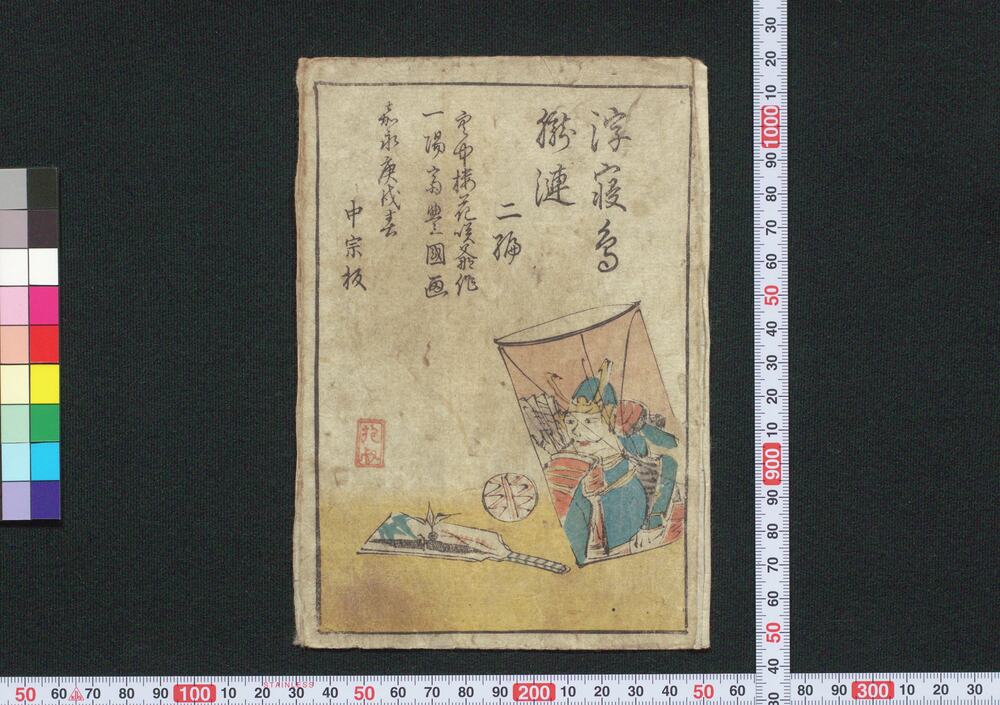 浮寢鳥
朧漣
二編
空中樓花咲爺作
一陽齋豊國画
嘉永庚戌春
中宗板
30 20 10 1000 90 80 70 60 50 40 30 20 10 900 90 80 70 60 50 40 30
50 60 70 80 90 100 10 20 30 40 50 60 70 80 90 200 10 20 30 40 50 60 80 90 300 10 20 30
STAINLESS